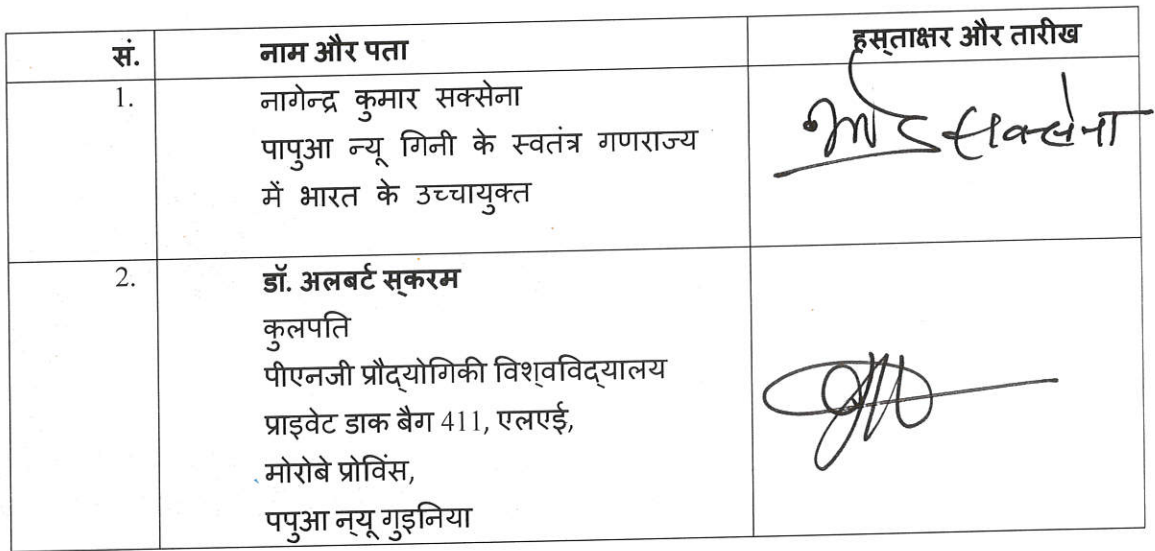 सं. नाम और पता हस्ताक्षर और तारीख
1. नागेन्द्र कुमार सक्सेना
पापुआ न्यू गिनी के स्वतंत्र गणराज्य
में भारत के उच्चायुक्त
सक्सेना
2. डॉ. अलबर्ट स्करम
कुलपति
पीएनजी प्रौद्योगिकी विश्वविद्यालय
प्राइवेट डाक बैग 411, एलएई,
मोरोबे प्रोविंस,
पपुआ न्यू गुइनिया